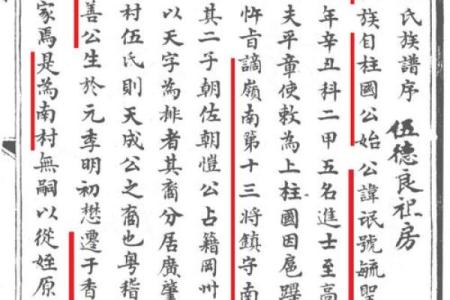 氏族譜序
伍德良祀房
族自柱國公始公諱號毓聖
年辛丑科二甲五名進士至高
夫平章使敕為上柱國因扈蹕
忤旨謫嶺南第十三將鎮守南
其二子朝佐朝愷公占籍岡州
以天字為排者其裔分居廣肇
村伍氏則天成公之裔也粵稽
善公生於元季明初懋遷于香
家焉是為南村無嗣以從姪原